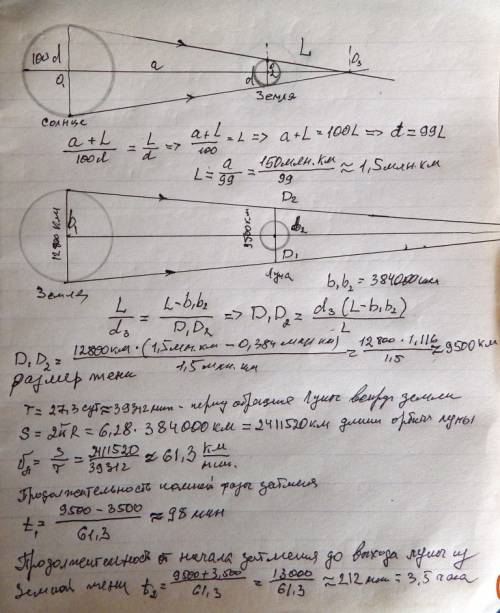 100d
a
d
L
O₁
O₂
O₃
Солнце
Земля
(a+L)/100d = L/d => (a+L)/100 = L => a+L = 100L => d = 99L
L = a/99 = 150млн.км/99 ≈ 1,5 млн.км
12800 км
b₁
9500 км
b₂
D₂
D₁
Земля
Луна
b₁b₂ = 384000 км
L/d₃ = (L-b₁b₂)/D₁D₂ => D₁D₂ = d₃(L-b₁b₂)/L
D₁D₂ = 12800км·(1,5млн.км - 0,384 млн км)/1,5 млн.км = 12800·1,116/1,5 ≈ 9500 км
размер тени
T = 27,3 сут ≈ 39312 мин - период обращения Луны вокруг земли
S = 2πR = 6,28 · 384000 км = 2411520 км длина орбиты луны
= S/T = 2411520/39312 ≈ 61,3 км/мин.
Продолжительность полной фазы затмения
t₁ = (9500-3500)/61,3 ≈ 98 мин
Продолжительность от начала затмения до выхода луны из
земной тени t₂ = (9500+3,500)/61,3 = 13000/61,3 ≈ 212 мин = 3,5 часа